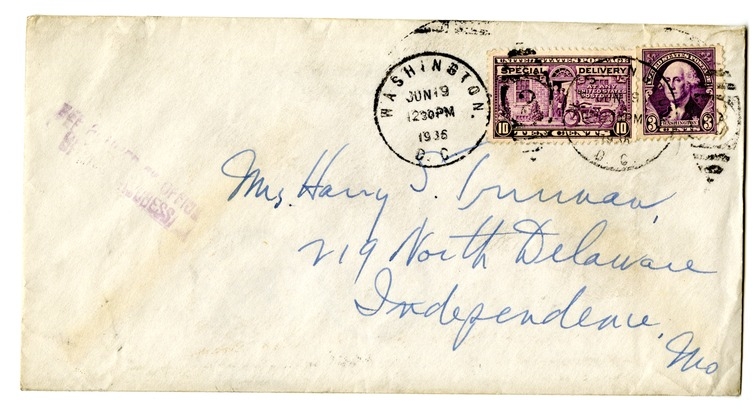 WASHINGTON,
JUN 19
12 30 PM
1936
D. C.
UNITED STATES POSTAGE
SPECIAL DELIVERY
AT ANY
UNITED STATES
POST OFFICE
10 TEN CENTS 10
UNITED STATES POSTAGE
WASHINGTON
3 CENTS 3
D. C.
FEE
OFFICE
ADDRESS
Mrs. Harry S. Truman,
219 North Delaware
Independence,
Mo